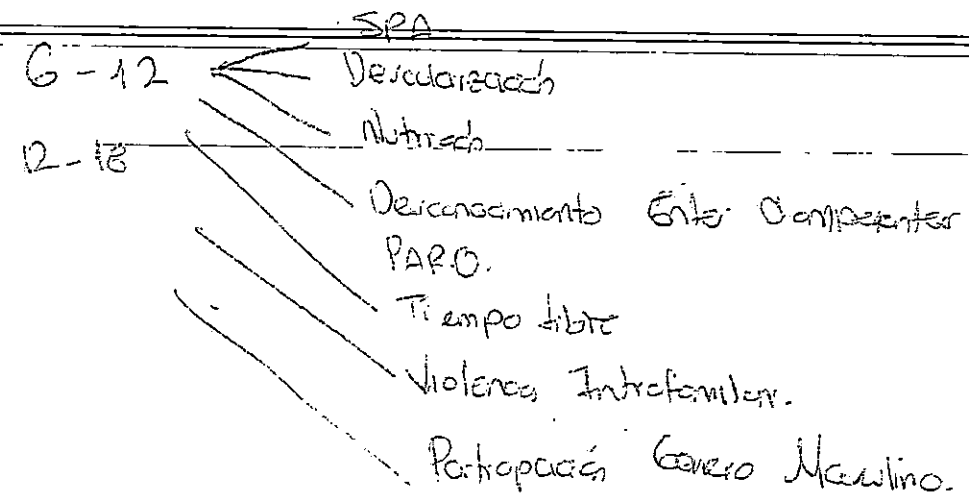 SPA
6-12 Descolarización
Nutrición
12-18
Desconocimiento Entes Competentes
PARD.
Tiempo libre
Violencia Intrafamiliar.
Participación Genero Masculino.